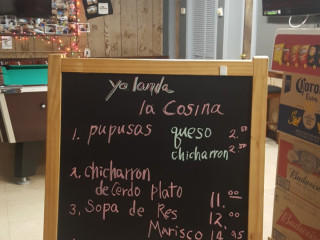 yolanda
la Cosina
1. pupusas queso 2.50
chicharron 2.50
2. chicharron
de Cerdo plato 11.00
3. Sopa de Res 12.00
Marisco 14.95
Corona
Budweiser